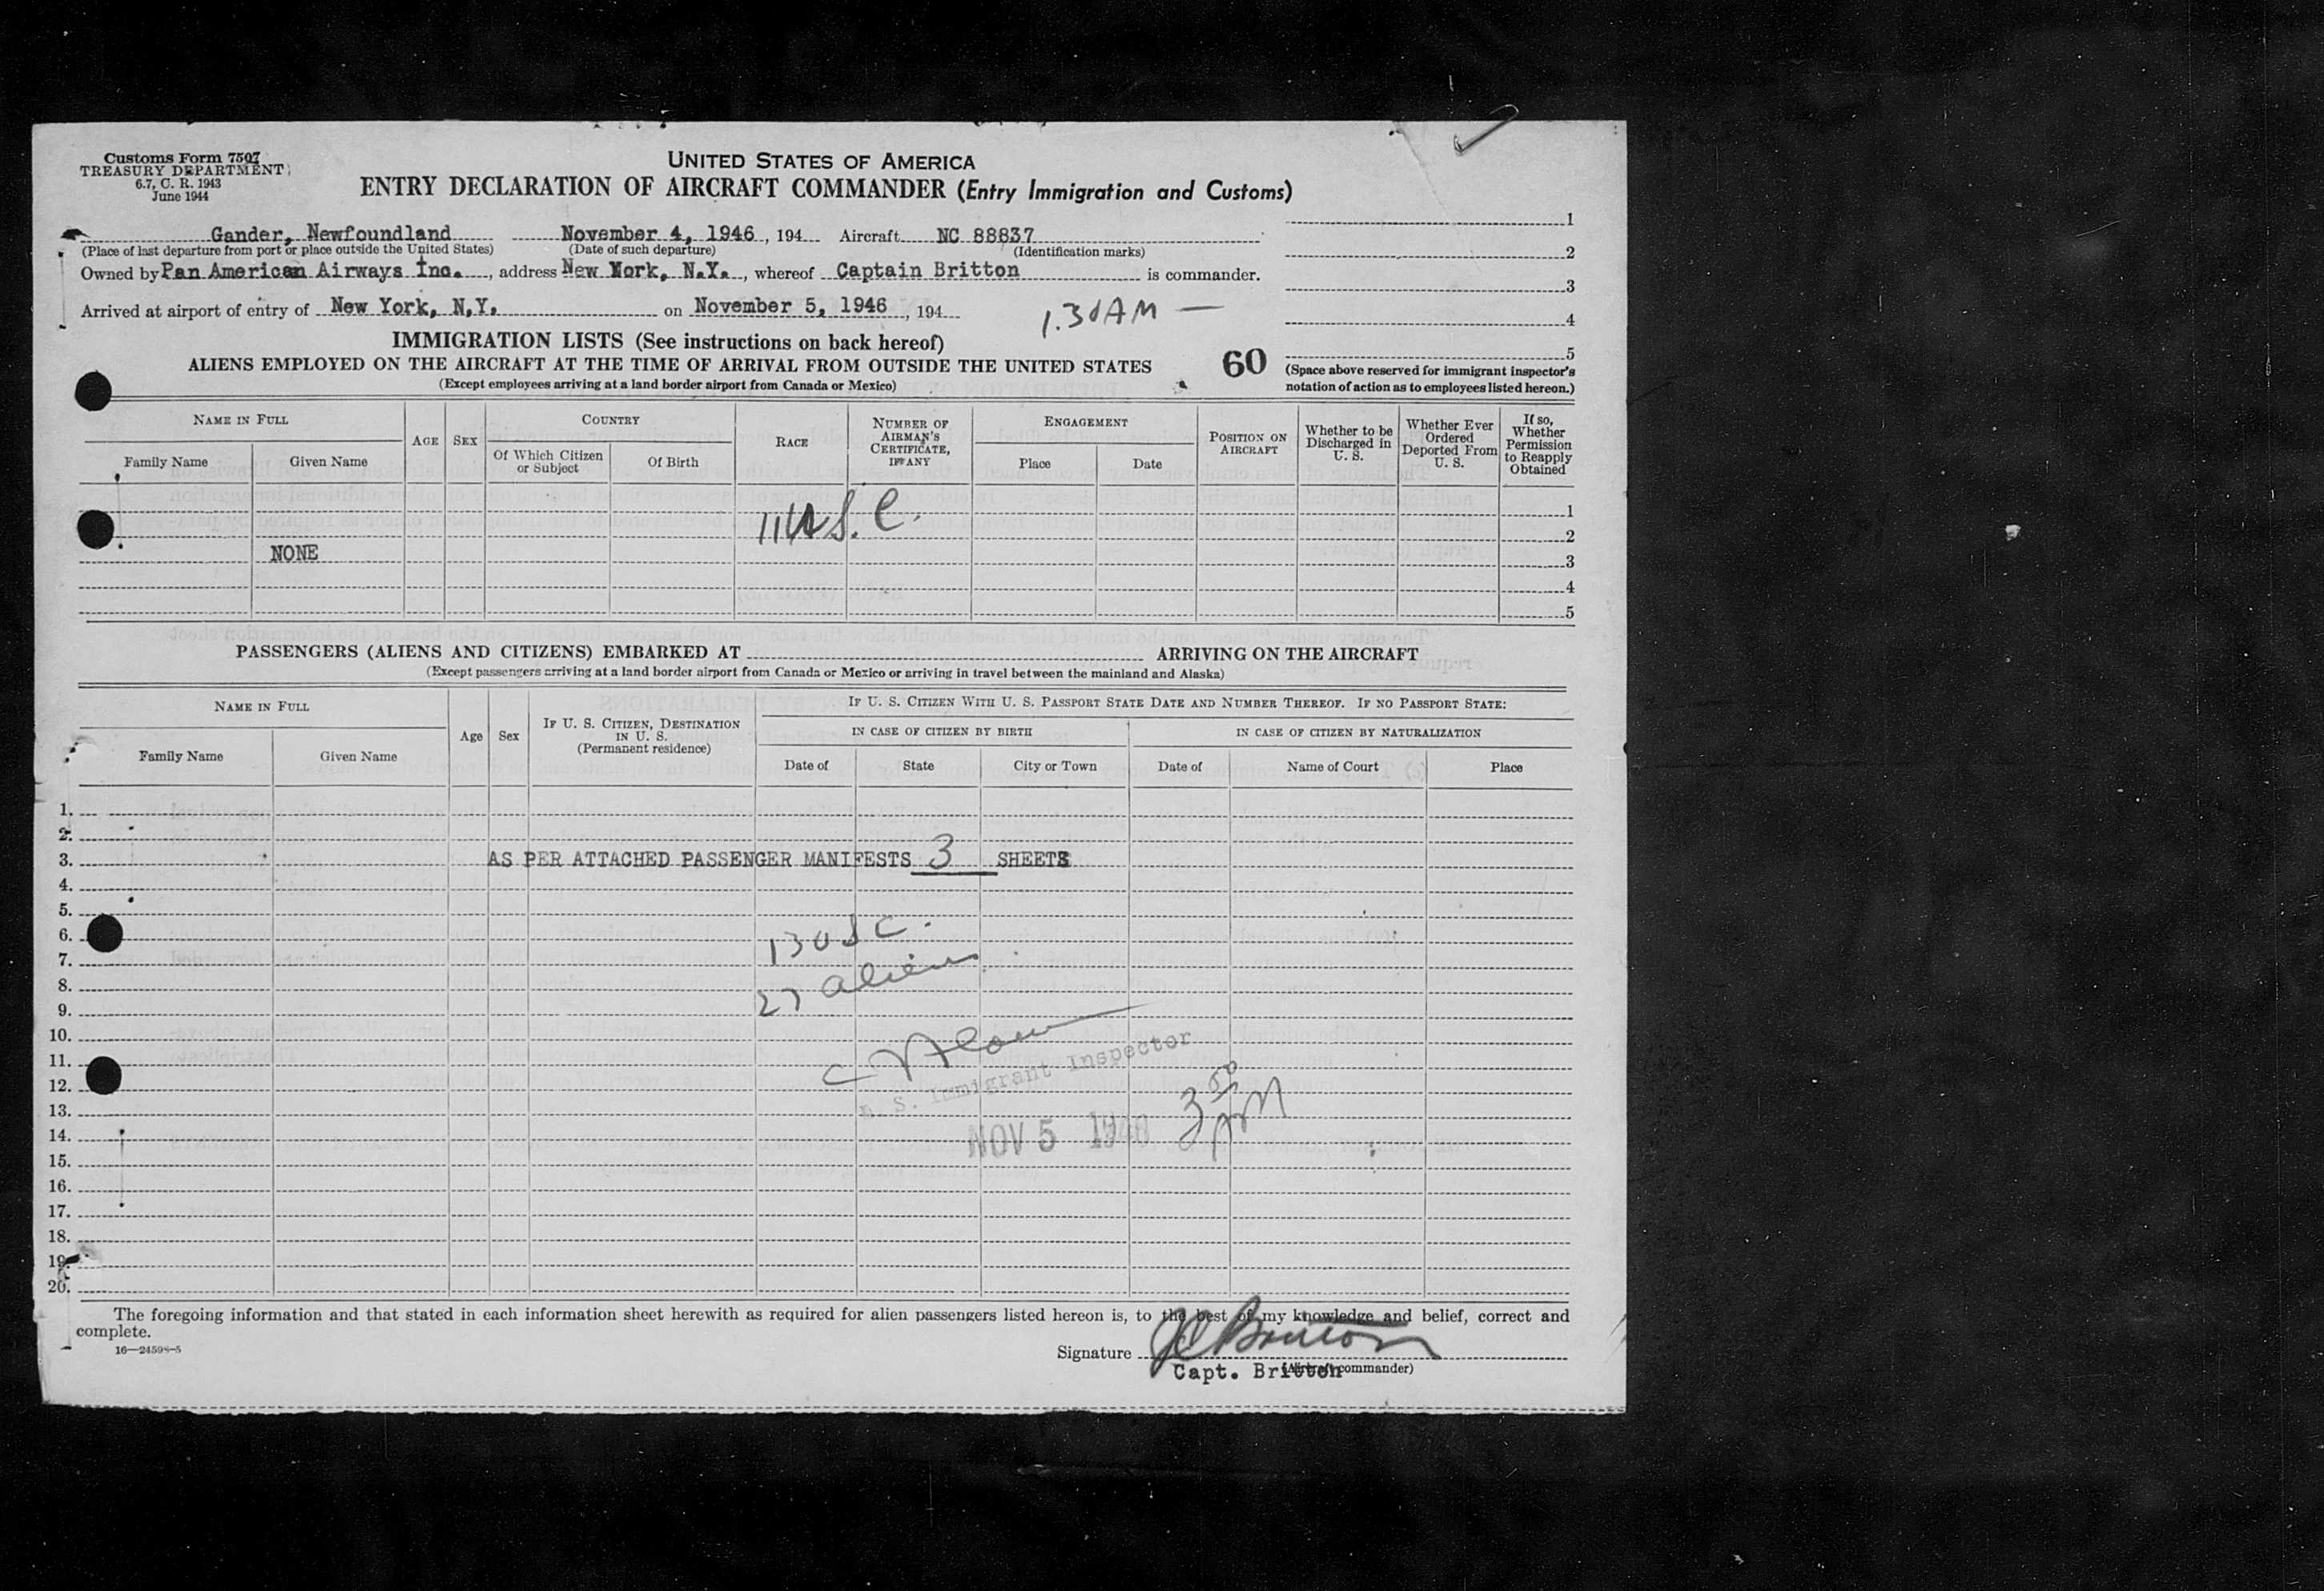 Customs Form 7507
TREASURY DEPARTMENT
6.7, C. R. 1943
June 1944
UNITED STATES OF AMERICA
ENTRY DECLARATION OF AIRCRAFT COMMANDER (Entry Immigration and Customs)
Gander, Newfoundland November 4, 1946, 194 Aircraft NC 88837
(Place of last departure from port or place outside the United States) (Date of such departure) (Identification marks)
Owned by Pan American Airways Inc., address New York, N.Y., whereof Captain Britton is commander.
Arrived at airport of entry of New York, N.Y. on November 5, 1946, 194
1.30 AM —
1
2
3
4
5
IMMIGRATION LISTS (See instructions on back hereof)
ALIENS EMPLOYED ON THE AIRCRAFT AT THE TIME OF ARRIVAL FROM OUTSIDE THE UNITED STATES
(Except employees arriving at a land border airport from Canada or Mexico)
60
(Space above reserved for immigrant inspector's
notation of action as to employees listed hereon.)
NAME IN FULL
Family Name Given Name
AGE SEX
COUNTRY
Of Which Citizen or Subject Of Birth
RACE
NUMBER OF AIRMAN'S CERTIFICATE, IF ANY
ENGAGEMENT
Place Date
POSITION ON AIRCRAFT
Whether to be Discharged in U. S.
Whether Ever Ordered Deported From U. S.
If so, Whether Permission to Reapply Obtained
11 U.S.C.
1
2
NONE 3
4
5
PASSENGERS (ALIENS AND CITIZENS) EMBARKED AT ARRIVING ON THE AIRCRAFT
(Except passengers arriving at a land border airport from Canada or Mexico or arriving in travel between the mainland and Alaska)
NAME IN FULL
Family Name Given Name
Age Sex
IF U. S. CITIZEN, DESTINATION IN U. S.
(Permanent residence)
IF U. S. CITIZEN WITH U. S. PASSPORT STATE DATE AND NUMBER THEREOF. IF NO PASSPORT STATE:
IN CASE OF CITIZEN BY BIRTH IN CASE OF CITIZEN BY NATURALIZATION
Date of State City or Town Date of Name of Court Place
1.
2.
3. AS PER ATTACHED PASSENGER MANIFESTS 3 SHEETS
4.
5.
6. 13 USC.
7.
8. 27 aliens
9.
10.
11.
12. U. S. Immigrant Inspector
13. 3 50 PM
14. NOV 5 1946
15.
16.
17.
18.
19.
20.
The foregoing information and that stated in each information sheet herewith as required for alien passengers listed hereon is, to the best of my knowledge and belief, correct and
complete.
16—24598-5
Signature JC Britton
Capt. Britton (Aircraft commander)